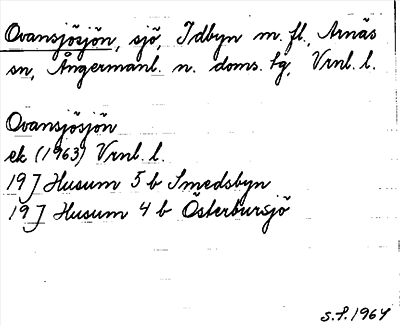 Ovansjösjön, sjö, Idbyn m. fl., Arnäs
sn, Ångermanl. n. doms. tg, Vrnl. l.
Ovansjösjön
ek (1963) Vrnl. l.
19 J Husum 5 b Smedsbyn
19 J Husum 4 b Österbursjö
s. f. 1964